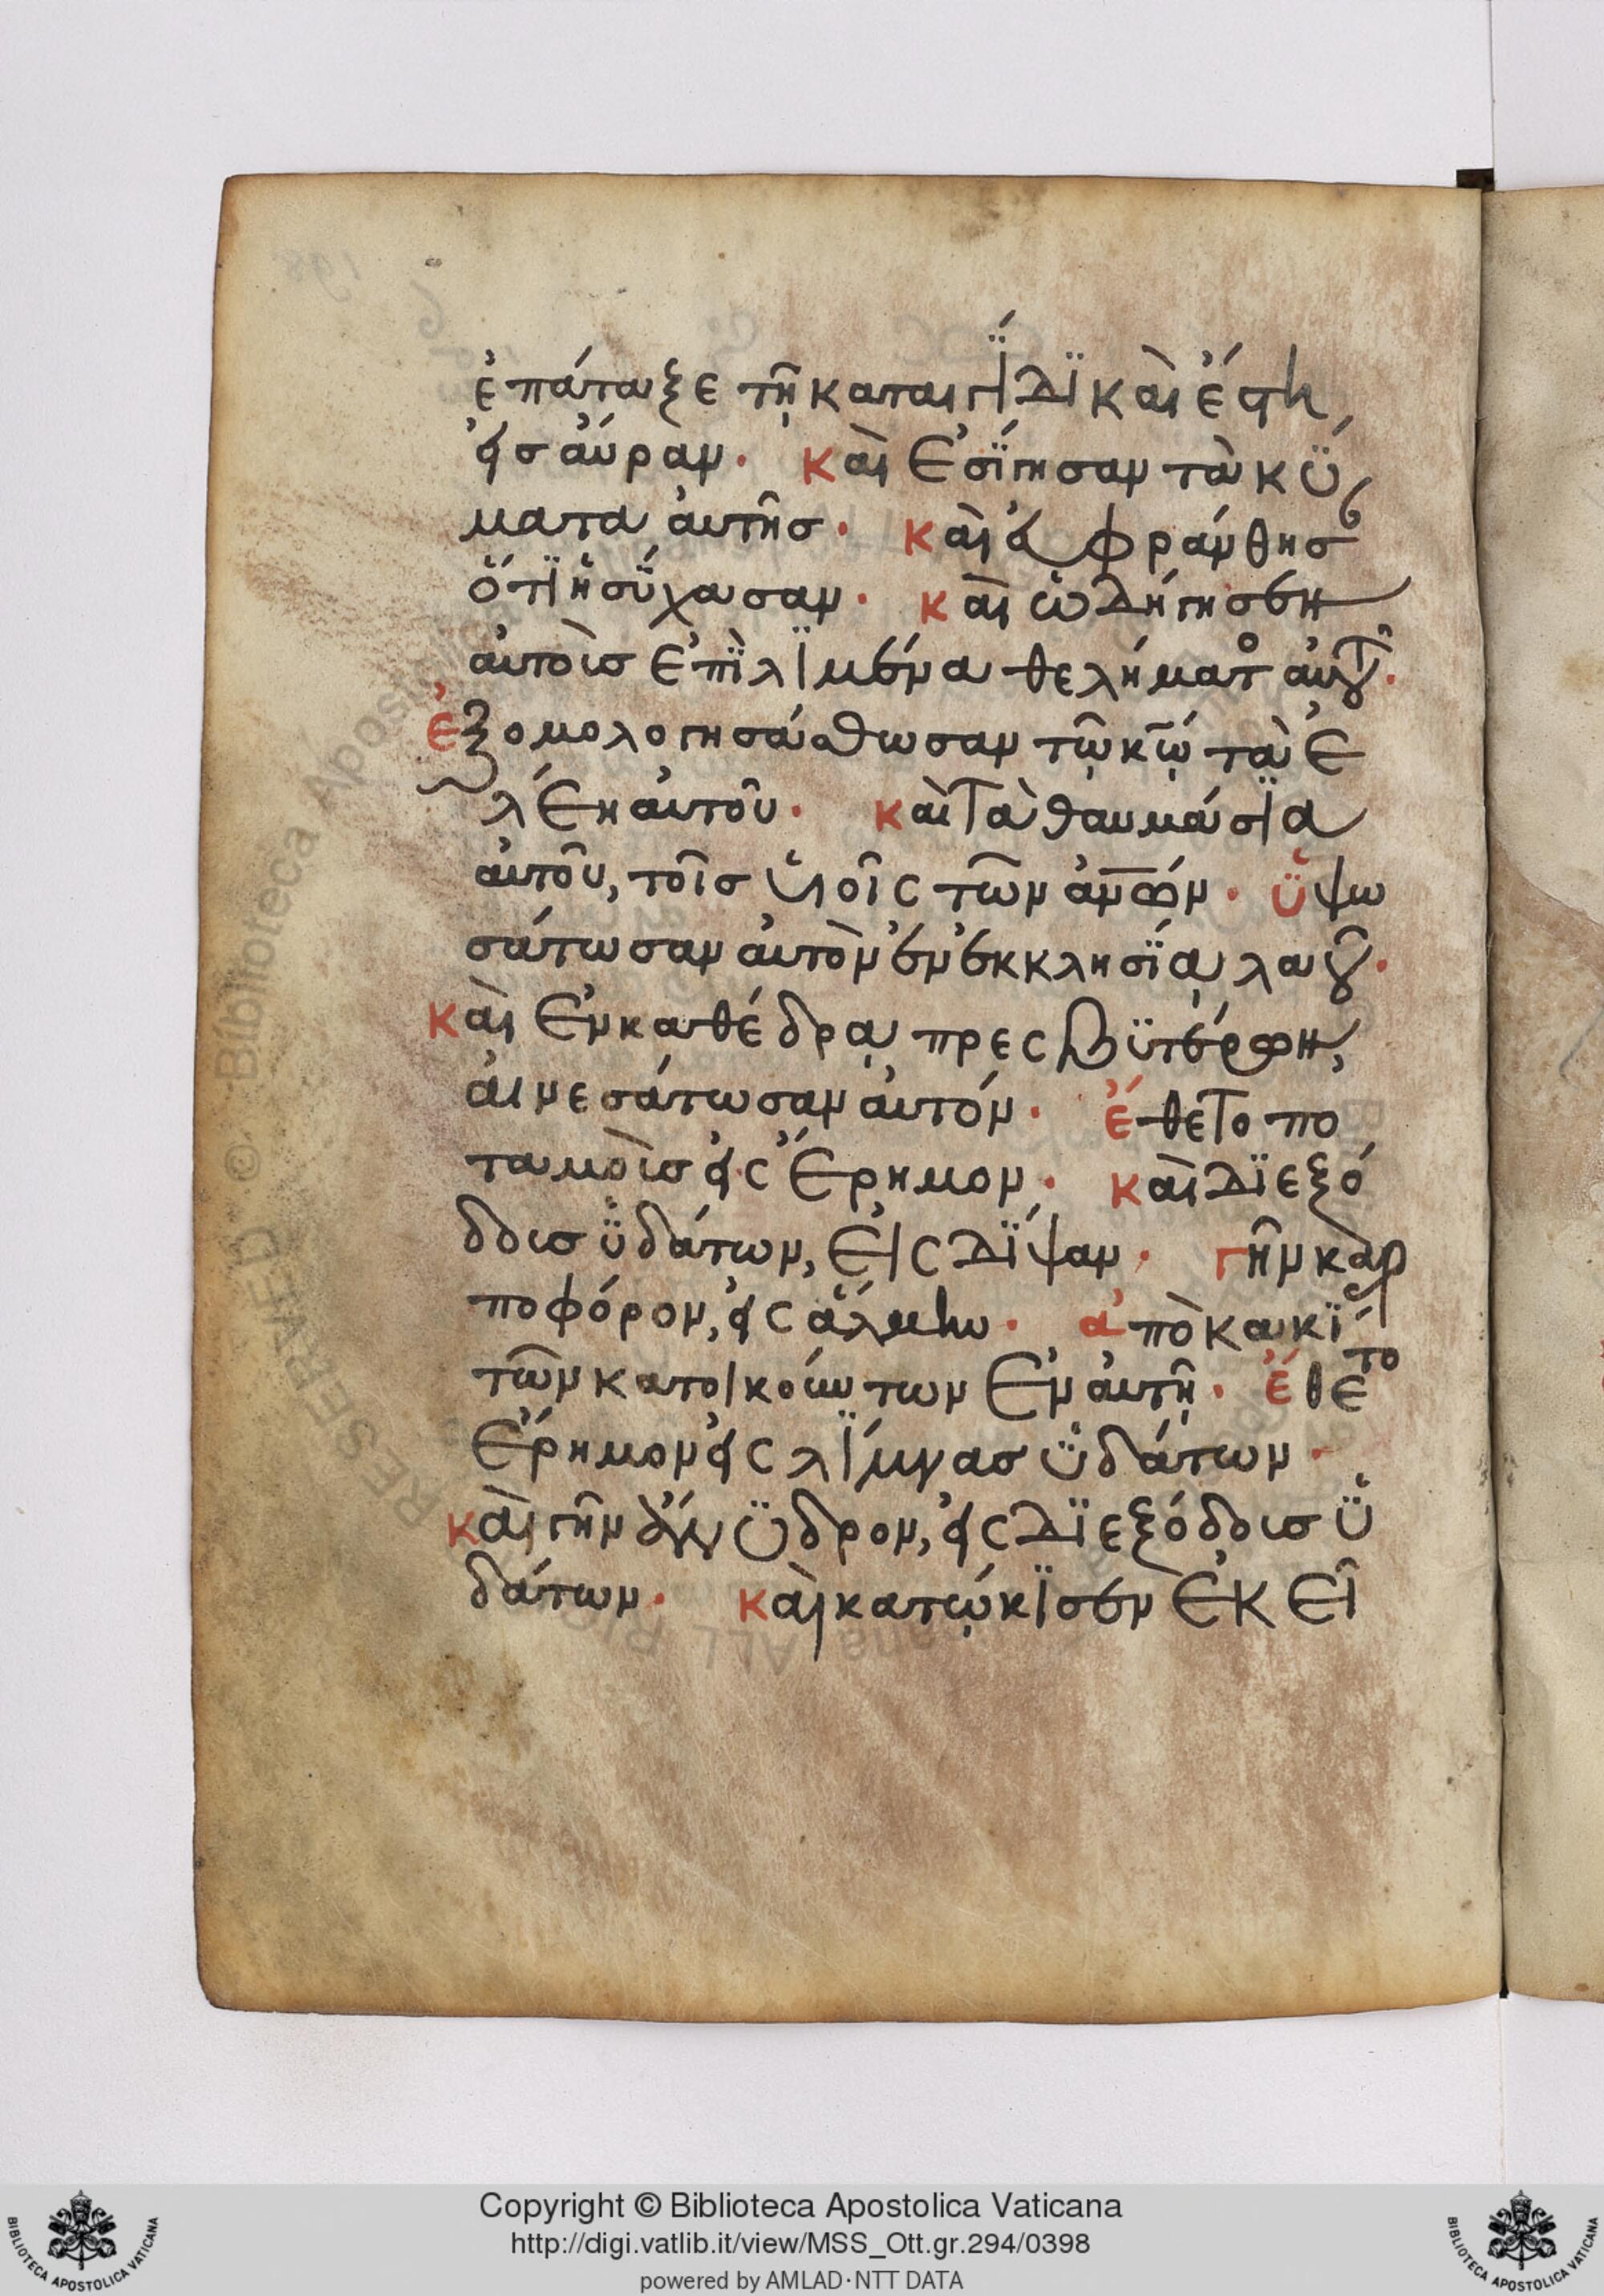 ἐπάταξε τῆ καταιγΐδϊ καὶ ἔστη
εἰσ αύραν· Καὶ ἐσΐγησαν τὰ κϋ
ματα ἀυτῆσ· Καὶ ἐυφράνθησ
ὅτϊ ἡσύχασαν· Καὶ ὡδήγησεν
ἀυτοὺσ ἐπῒ λϊμένα θελήματος ἀυτοῦ·
Ἐξομολογησάσθωσαν τῶ κῶ τὰ ἐ
λέη ἀυτοῦ· Καὶ τὰ θαυμάσϊα
ἀυτοῦ, τοῖσ ὑιοῖς τῶν ἀνων· Ὑψω
σάτωσαν ἀυτὸν ἐν ἐκκλησΐα λαοῦ·
Καὶ ἐν καθέδρα πρεσβϋτέρων,
ἀινεσάτωσαν ἀυτόν· Ἔθετο πο
ταμοὺσ εἰς ἔρημον· Καὶ δϊεξό
δουσ ὑδάτων, εἰς δΐψαν· Γῆν καρ
ποφόρον, εἰς ἅλμην· Ἀπὸ κακΐ
τῶν κατοικούντων ἐν ἀυτῆ· Ἔθετο
ἔρημον εἰς λΐμνασ ὑδάτων·
Καὶ γῆν ἄνϋδρον, εἰς δϊεξόδουσ ὑ
δάτων· Καὶ κατώκϊσεν ἐκεῖ
Copyright © Biblioteca Apostolica Vaticana
http://digi.vatlib.it/view/MSS_Ott.gr.294/0398
powered by AMLAD·NTT DATA
BIBLIOTECA APOSTOLICA VATICANA
BIBLIOTECA APOSTOLICA VATICANA